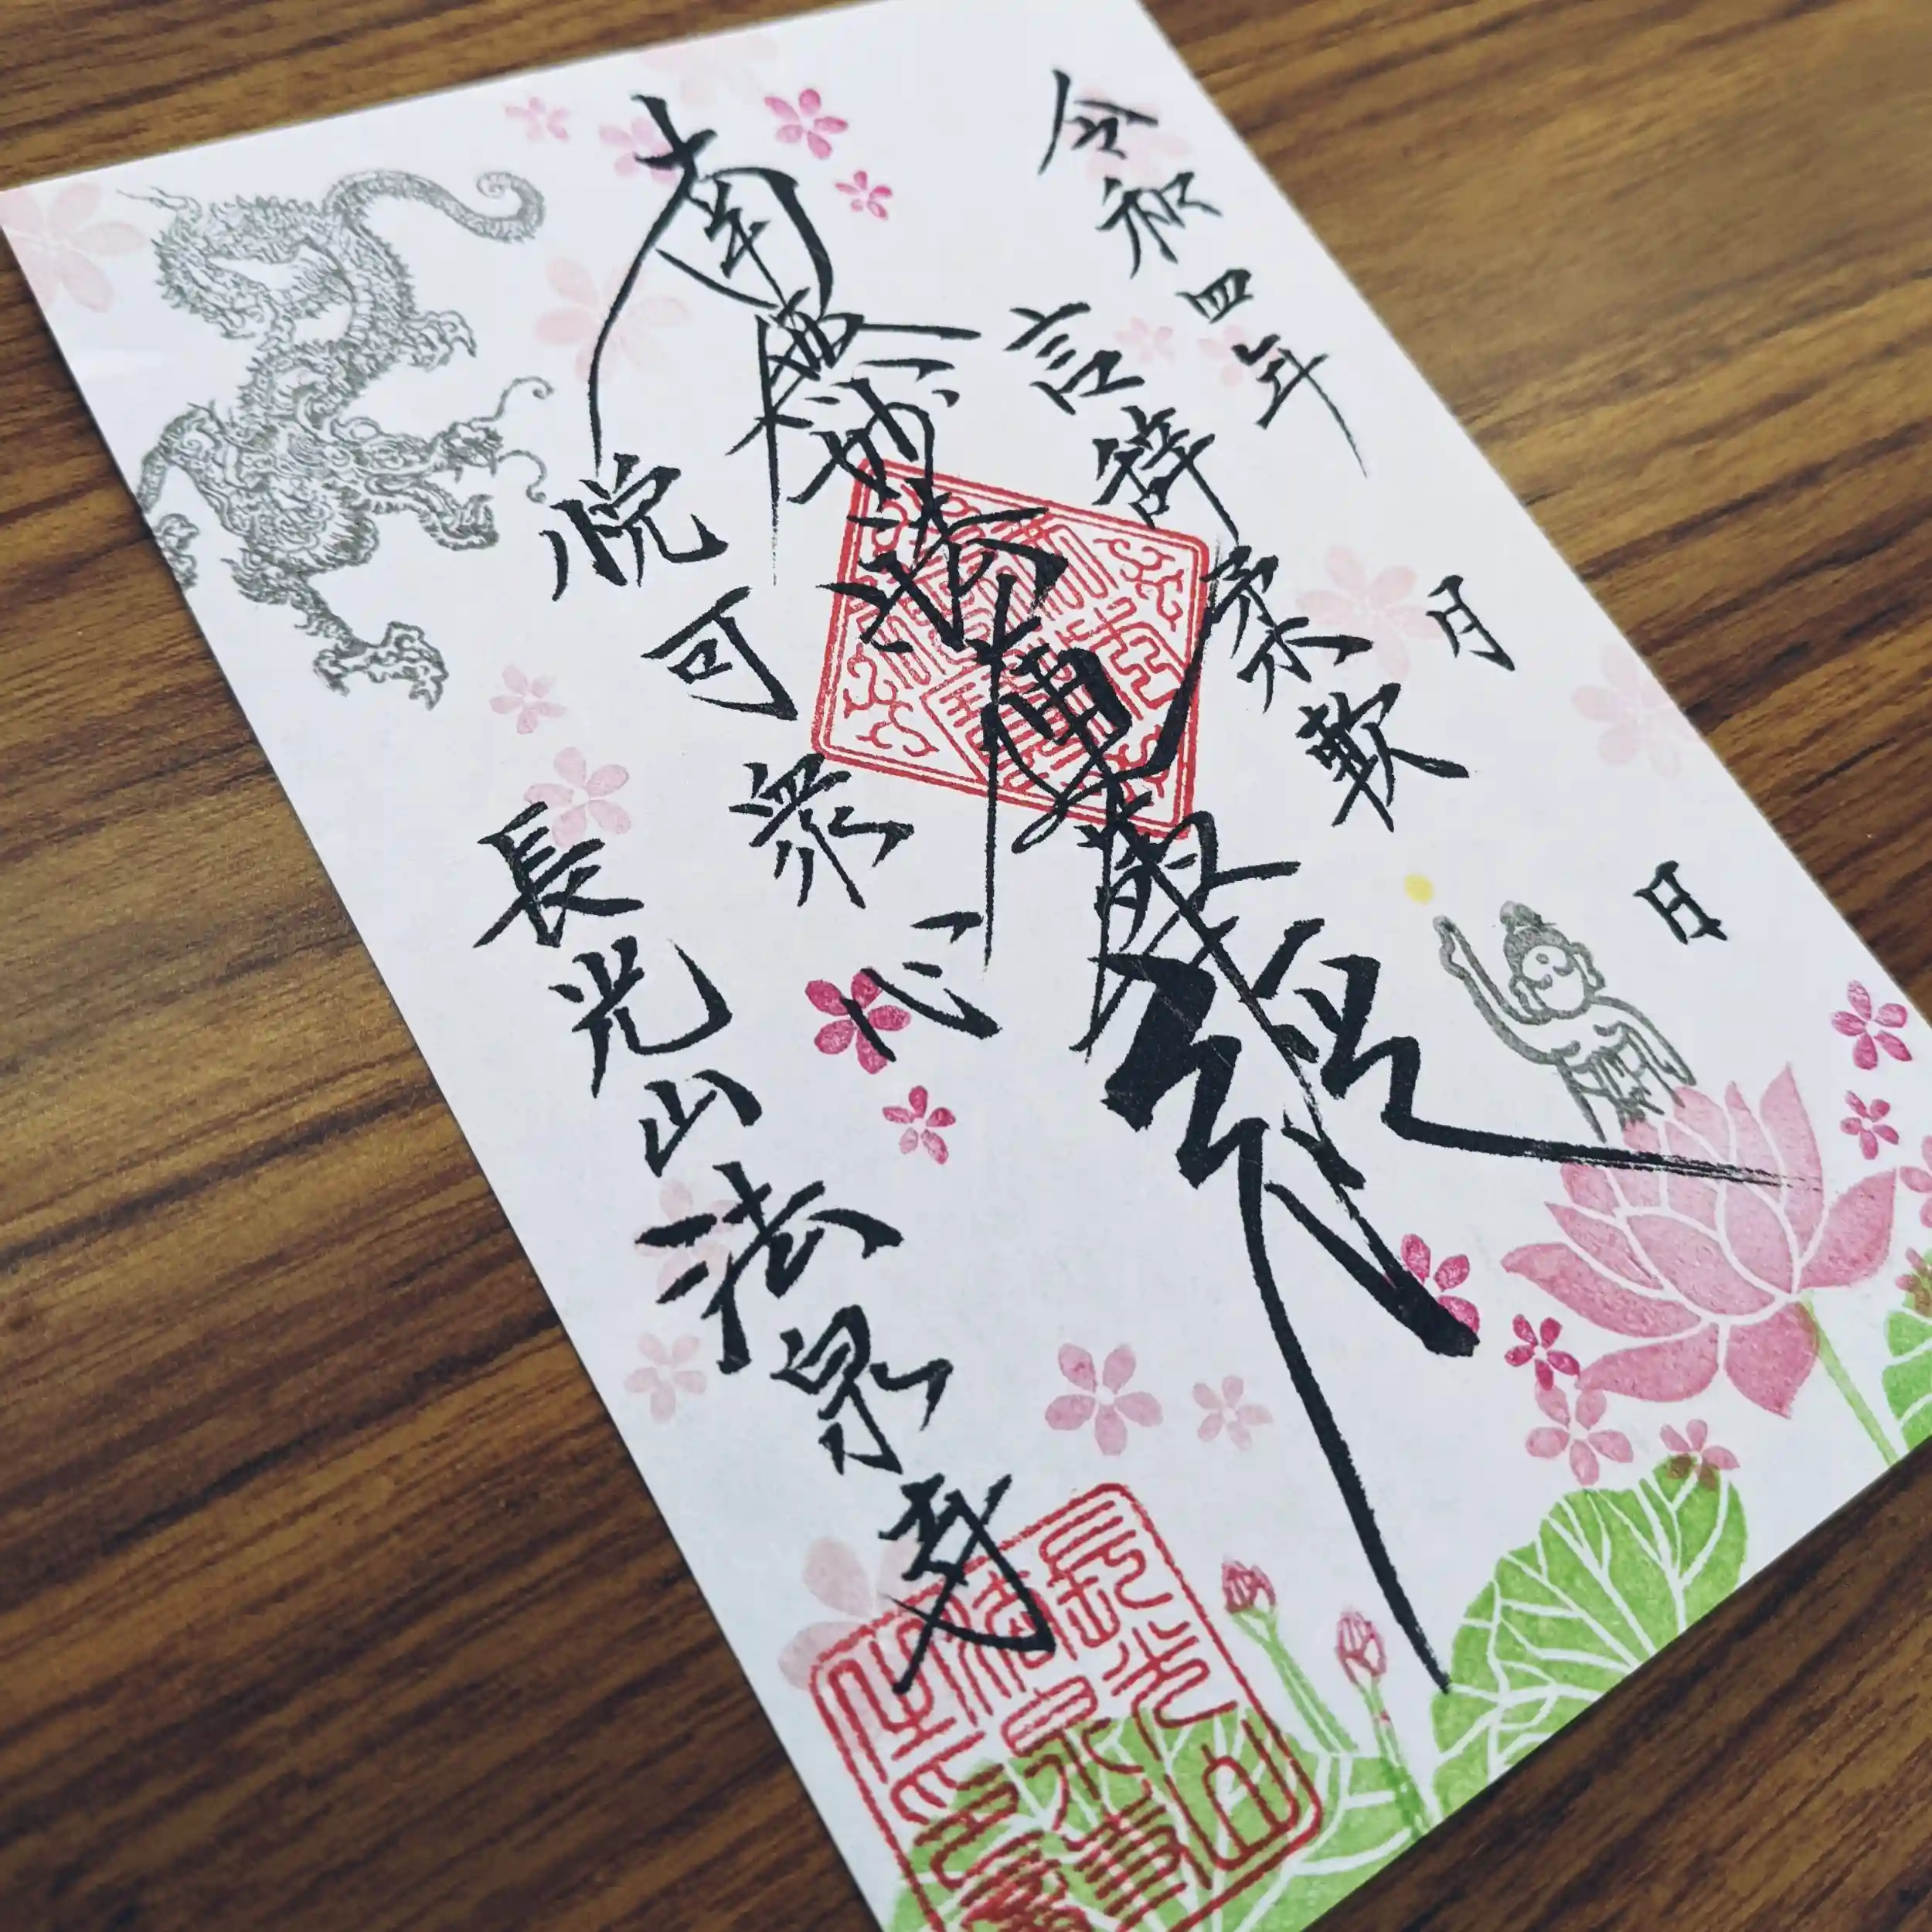 令和四年 月 日
言辞柔軟
南無妙法蓮華経
悦可衆心
長光山法泉寺
長光山
法泉寺